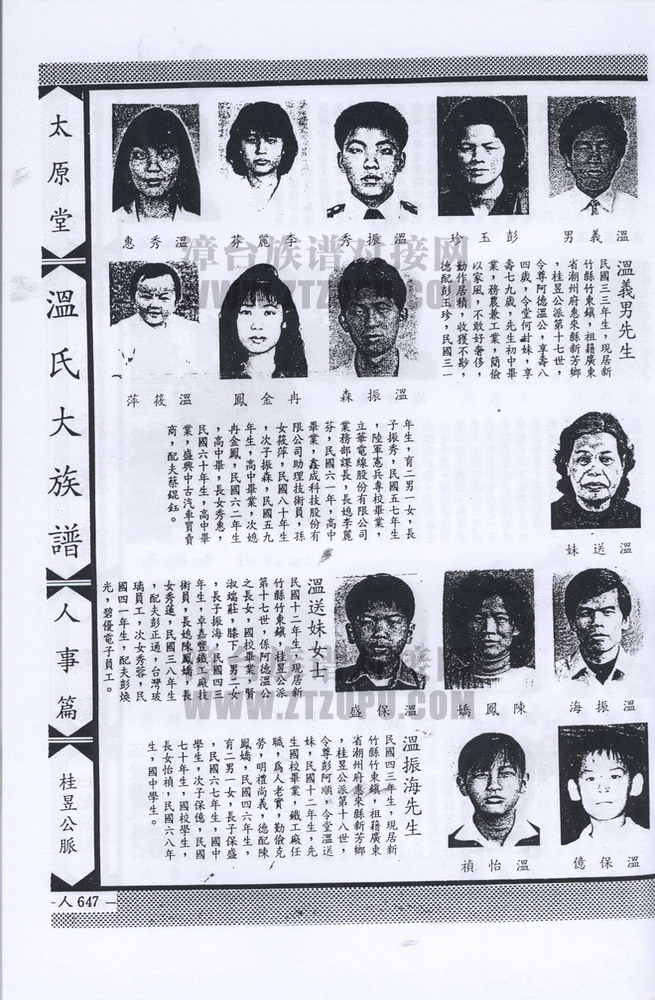 太原堂
溫氏大族譜
人事篇
桂昱公脈
-人647-
男義溫
珍玉彭
秀振溫
芬麗李
惠秀溫
森振溫
鳳金冉
萍筱溫
溫義男先生
民國三三年生，現居新
竹縣竹東鎮，祖籍廣東
省潮州府惠來縣新芳鄉
，桂昱公派第十七世，
令尊阿德溫公，享壽八
四歲，令堂何封妹，享
壽七九歲，先生初中畢
業，務農兼工業，簡儉
以家風，不敢好奢侈，
勤作居積，收獲不尠，
德配彭玉珍，民國三一
年生，育二男一女，長
子振秀，民國五七年生
，陸軍憲兵專校畢業，
立華電線股份有限公司
業務部課長，長媳李麗
芬，民國六一年，高中
畢業，鑫成科技股份有
限公司助理技術員，孫
女筱萍，民國八十年生
，次子振森，民國五九
年生，高中畢業，次媳
冉金鳳，民國六二年生
，高中畢，長女秀惠，
民國六十年生，高中畢
業，盛興中古汽車買賣
商，配夫蔡錕鈺。
妹送溫
溫送妹女士
民國十二年生，現居新
竹縣竹東鎮，桂昱公派
第十七世，係阿德溫公
之長女，國校畢業，賢
淑端莊，膝下一男二女
，長子振海，民國四三
年生，卓嘉豐鐵工廠技
術員，長媳陳鳳嬌，長
女秀蓮，民國三八年生
，配夫彭正通，台灣玻
璃員工，次女秀蓉，民
國四一年生，配夫彭煥
光，碧優電子員工。
海振溫
嬌鳳陳
盛保溫
溫振海先生
民國四三年生，現居新
竹縣竹東鎮，祖籍廣東
省潮州府惠來縣新芳鄉
，桂昱公派第十八世，
令尊彭阿順，令堂溫送
妹，民國十二年生，先
生國校畢業，鐵工廠任
職，為人老實，勤儉克
勞，明禮尚義，德配陳
鳳嬌，民國四六年生，
育二男一女，長子保盛
，民國六七年生，國中
學生，次子保億，民國
七十年生，國校學生，
長女怡禎，民國六八年
生，國中學生。
億保溫
禎怡溫
漳台族谱对接网
WWW.ZTZUPU.COM
漳台族谱对接网
WWW.ZTZUPU.COM